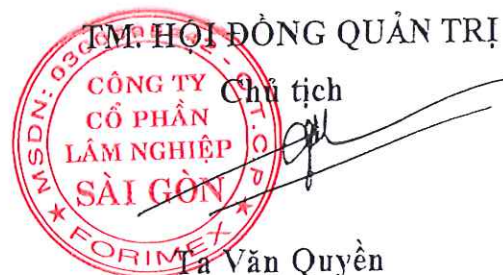 TM. HỘI ĐỒNG QUẢN TRỊ
Chủ tịch
CÔNG TY
CỔ PHẦN
LÂM NGHIỆP
SÀI GÒN
MSDN:
C.T.C.P
★ FORIMEX ★
Tạ Văn Quyền